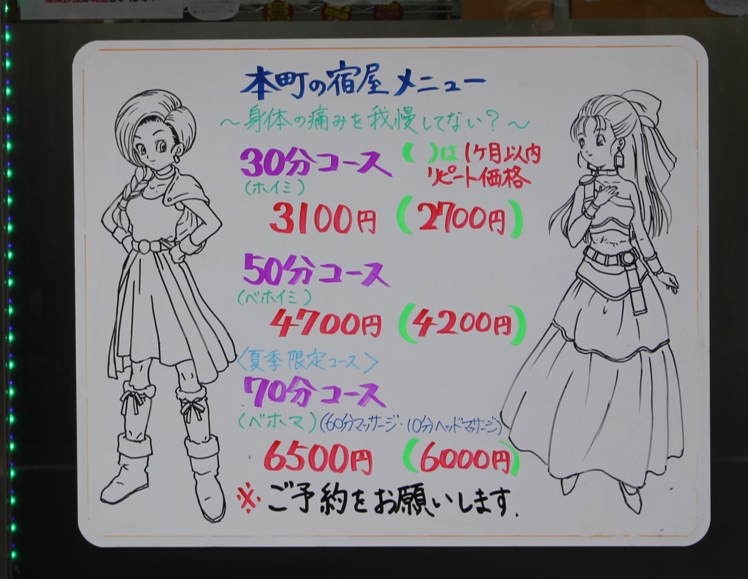 本町の宿屋メニュー
～身体の痛みを我慢してない？～
30分コース
( )は1ケ月以内
リピート価格
(ホイミ)
3100円 (2700円)
50分コース
(ベホイミ)
4700円 (4200円)
〈夏季限定コース〉
70分コース
(ベホマ) (60分マッサージ・10分ヘッドマッサージ)
6500円 (6000円)
※ご予約をお願いします.